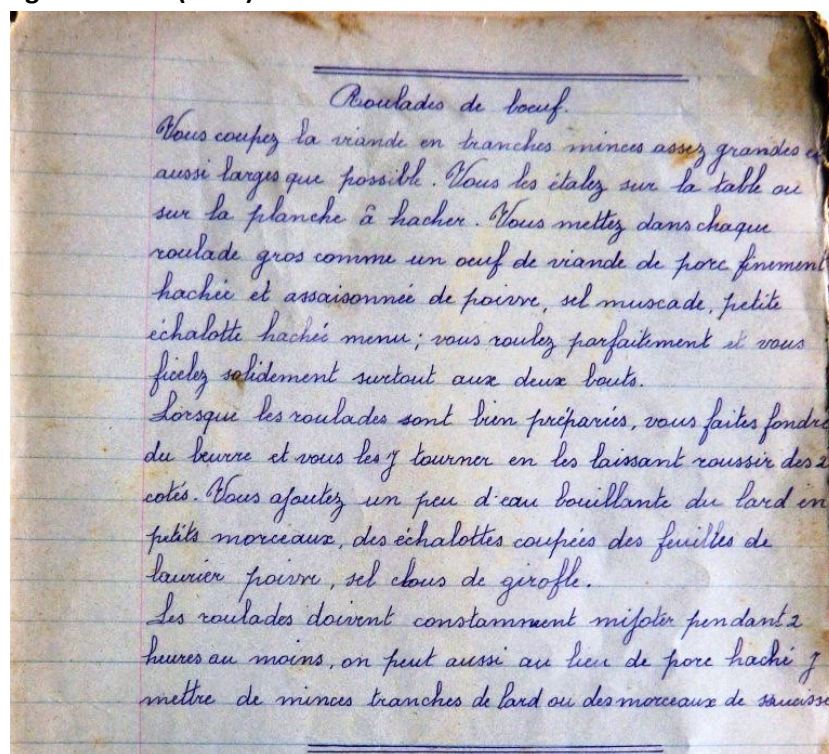 Roulades de boeuf.
Vous coupez la viande en tranches minces assez grandes et
aussi larges que possible. Vous les étalez sur la table ou
sur la planche à hacher. Vous mettez dans chaque
roulade gros comme un oeuf de viande de porc finement
hachée et assaisonnée de poivre, sel muscade, petite
échalotte hachée menu; vous roulez parfaitement et vous
ficelez solidement surtout aux deux bouts.
Lorsque les roulades sont bien préparées, vous faites fondre
du beurre et vous les y tourner en les laissant roussir des 2
cotés. Vous ajoutez un peu d'eau bouillante du lard en
petits morceaux, des échalottes coupées des feuilles de
laurier poivre, sel clous de girofle.
Les roulades doivent constamment mijoter pendant 2
heures au moins, on peut aussi au lieu de porc haché y
mettre de minces tranches de lard ou des morceaux de saucisse